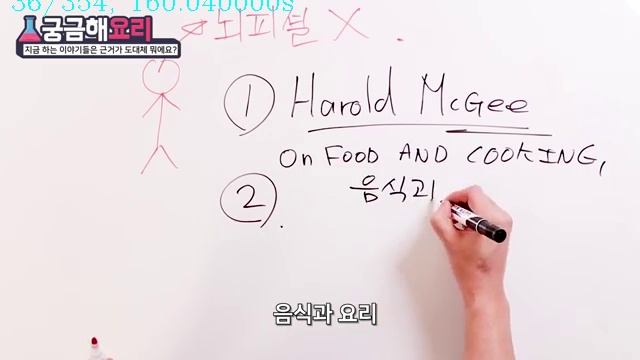 36/354, 160.040000s
궁금해요리
지금 하는 이야기들은 근거가 도대체 뭐에요?
뇌피셜 X.
① Harold McGee
On FOOD AND COOKING,
음식과
②.
음식과 요리